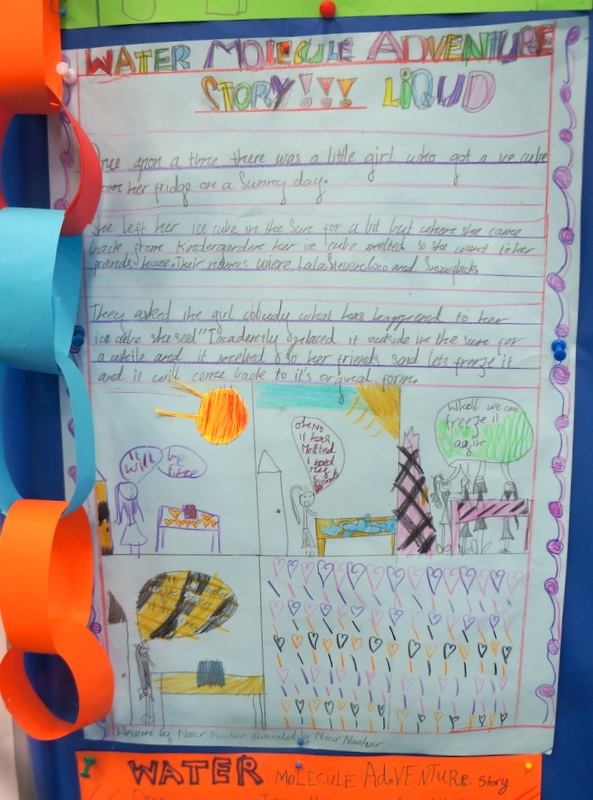 WATER MOLECULE ADVENTURE
STORY!!! LIQUD
Once upon a time there was a little girl who got a ice cube
from her fridge on a Sunny day.
She left her ice cube in the Sun for a bit but where she came
back from Kindergardene her ice cube melted so she went to her
friends house. Their names where Lala, and
They asked the girl what has happened to her
ice cube she sed "I placed it outside in the sun for
a while and it melted so her friends said lets freeze it
and it will come back to it's orginal form.
It will be fine
oh No
it has
melted
I need
my
Well we can
freeze it
agine
by Noor Illustrated by Noor
WATER MOLECULE ADVENTURE Story